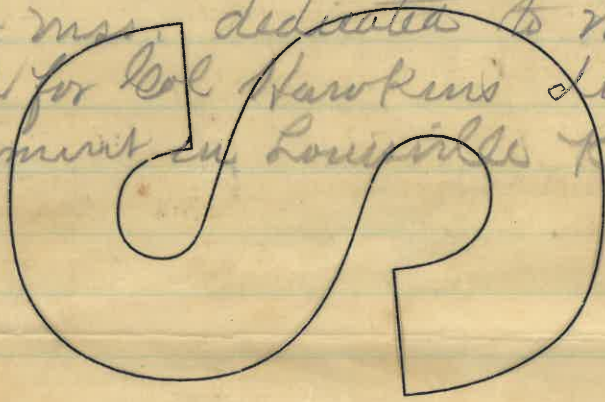 mss. dedicated to
for Col Hawkins
in Louisville
S